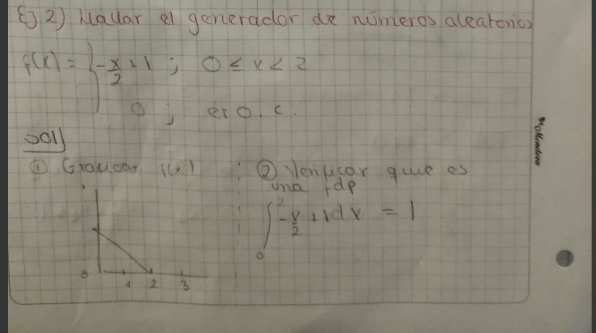 Ej 2) Hallar el generador de números aleatorios
f(x) = { -x/2 + 1 ; 0 ≤ x < 2
0 ; en o. c.
Sol)
① Graficar f(x)
② Verificar que es
una fdp
∫₀² -x/2 + 1 dx = 1
0 1 2 3